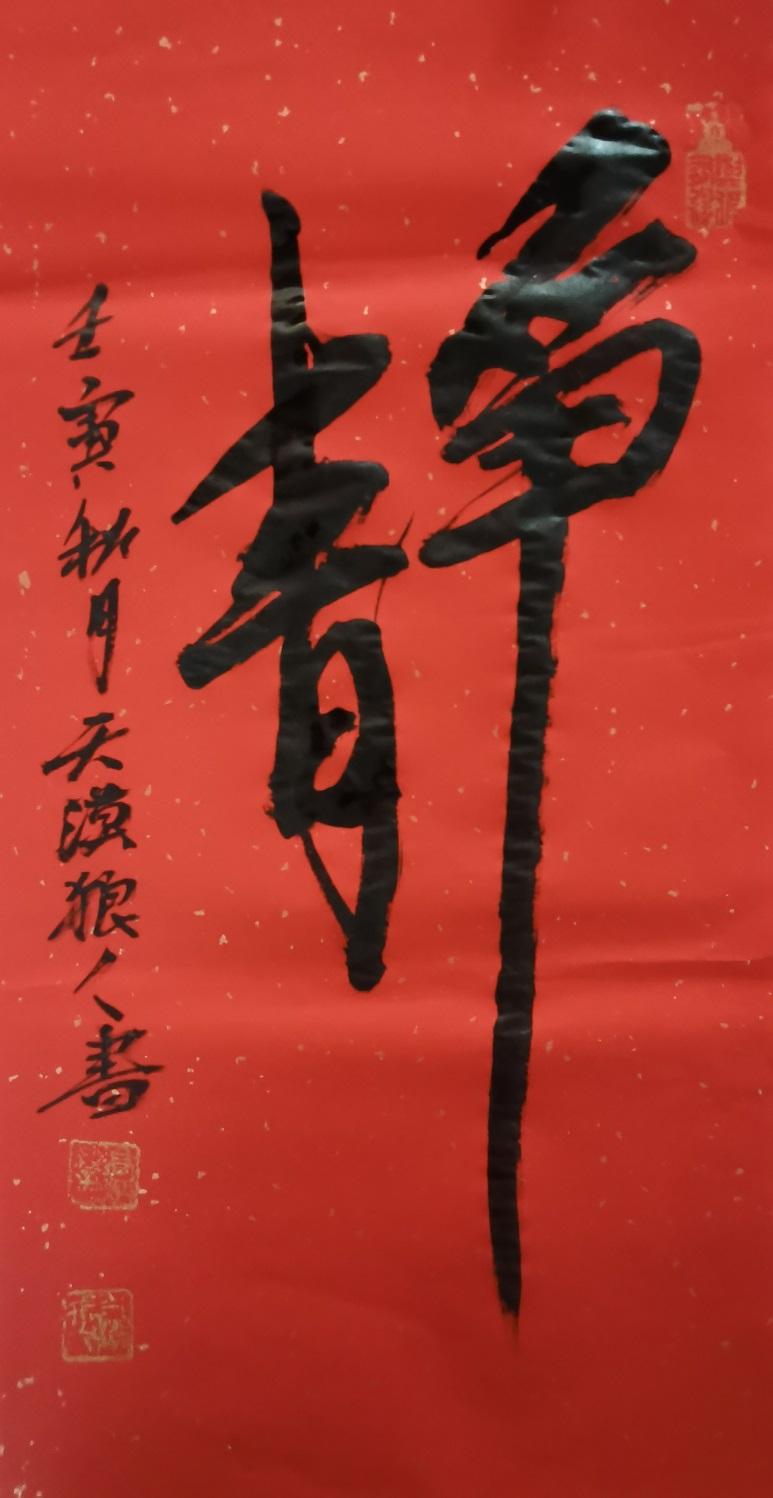 静
壬寅秋月天漠狼人書